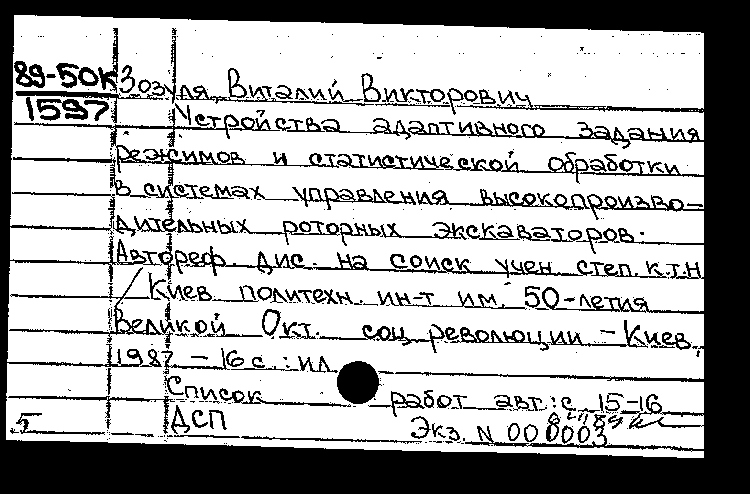 89-50к Зозуля, Виталий Викторович
1597 Устройства адаптивного задания
режимов и статистической обработки
в системах управления высокопроизво-
дительных роторных экскаваторов.
Автореф. дис. на соиск учен степ. к.т.н
/ Киев политехн. ин-т им. 50-летия
Великой Окт. соц революции - Киев,
1987 - 16 с. : ил
Список работ авт.: с. 15-16
5 ДСП Экз. N 000003